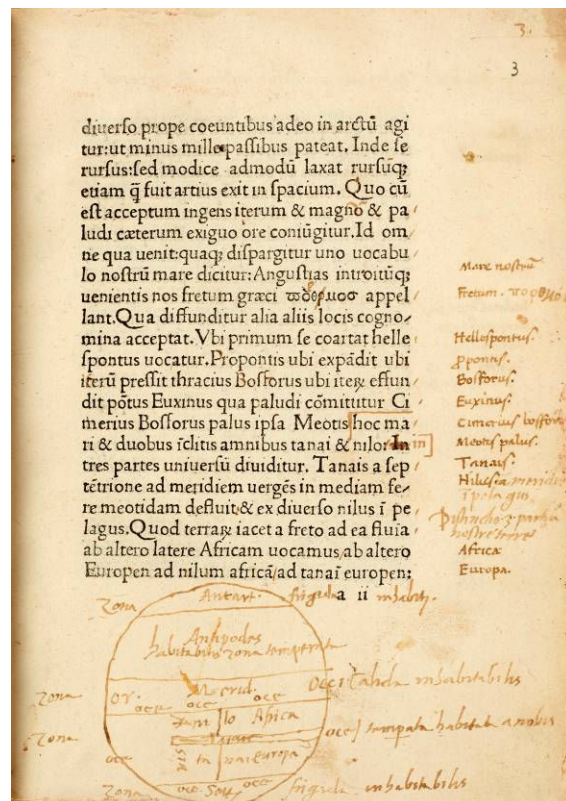 3.
3
diuerso prope coeuntibus adeo in arctū agi
tur:ut minus mille passibus pateat. Inde se
rursus:sed modice admodū laxat rursusqꝫ
etiam q̄ fuit artius exit in spacium. Quo cū
est acceptum ingens iterum & magno & pa
ludi cæterum exiguo ore coniūgitur. Id om
ne qua uenit:quaqꝫ dispargitur uno uocabu
lo nostrū mare dicitur: Angustias introitūqꝫ
uenientis nos fretum græci appel
lant. Qua diffunditur alia aliis locis cogno
mina acceptat. Vbi primum se coartat helle
spontus uocatur. Propontis ubi expādit ubi
iterū pressit thracius Bosforus ubi iteꝝ effun
dit pōtus Euxinus qua paludi cōmittitur Ci
merius Bosforus palus ipsa Meotis hoc ma
ri & duobus īclitis amnibus tanai & nilo: In
tres partes uniuersū diuiditur. Tanais a sep
tētrione ad meridiem uergēs in mediam fe
re meotidam defluit:& ex diuerso nilus ī pe
lagus. Quod terraꝝ iacet a freto ad ea fluia
ab altero latere Africam uocamus/ab altero
Europen ad nilum africā/ad tanaī europen:
a ii
Mare nostrū
Fretum.
Hellospontus.
ꝓpontis.
Bosforus.
Euxinus.
Cimerius bosfor
Meotis palus.
in
Tanais.
Nilus a meridie
Distinctio 3 partiū
nostre terre
Africa
Europa.
Zona Antart. frigida inhabit.
Antipodes
habitabilis zona temperata
Zona or. Merid. occi Calida inhabitabilis
oce oce oce
Africa
Zona oce Europa oce temperata habitata a nobis
Zona oce Sept oce frigida inhabitabilis